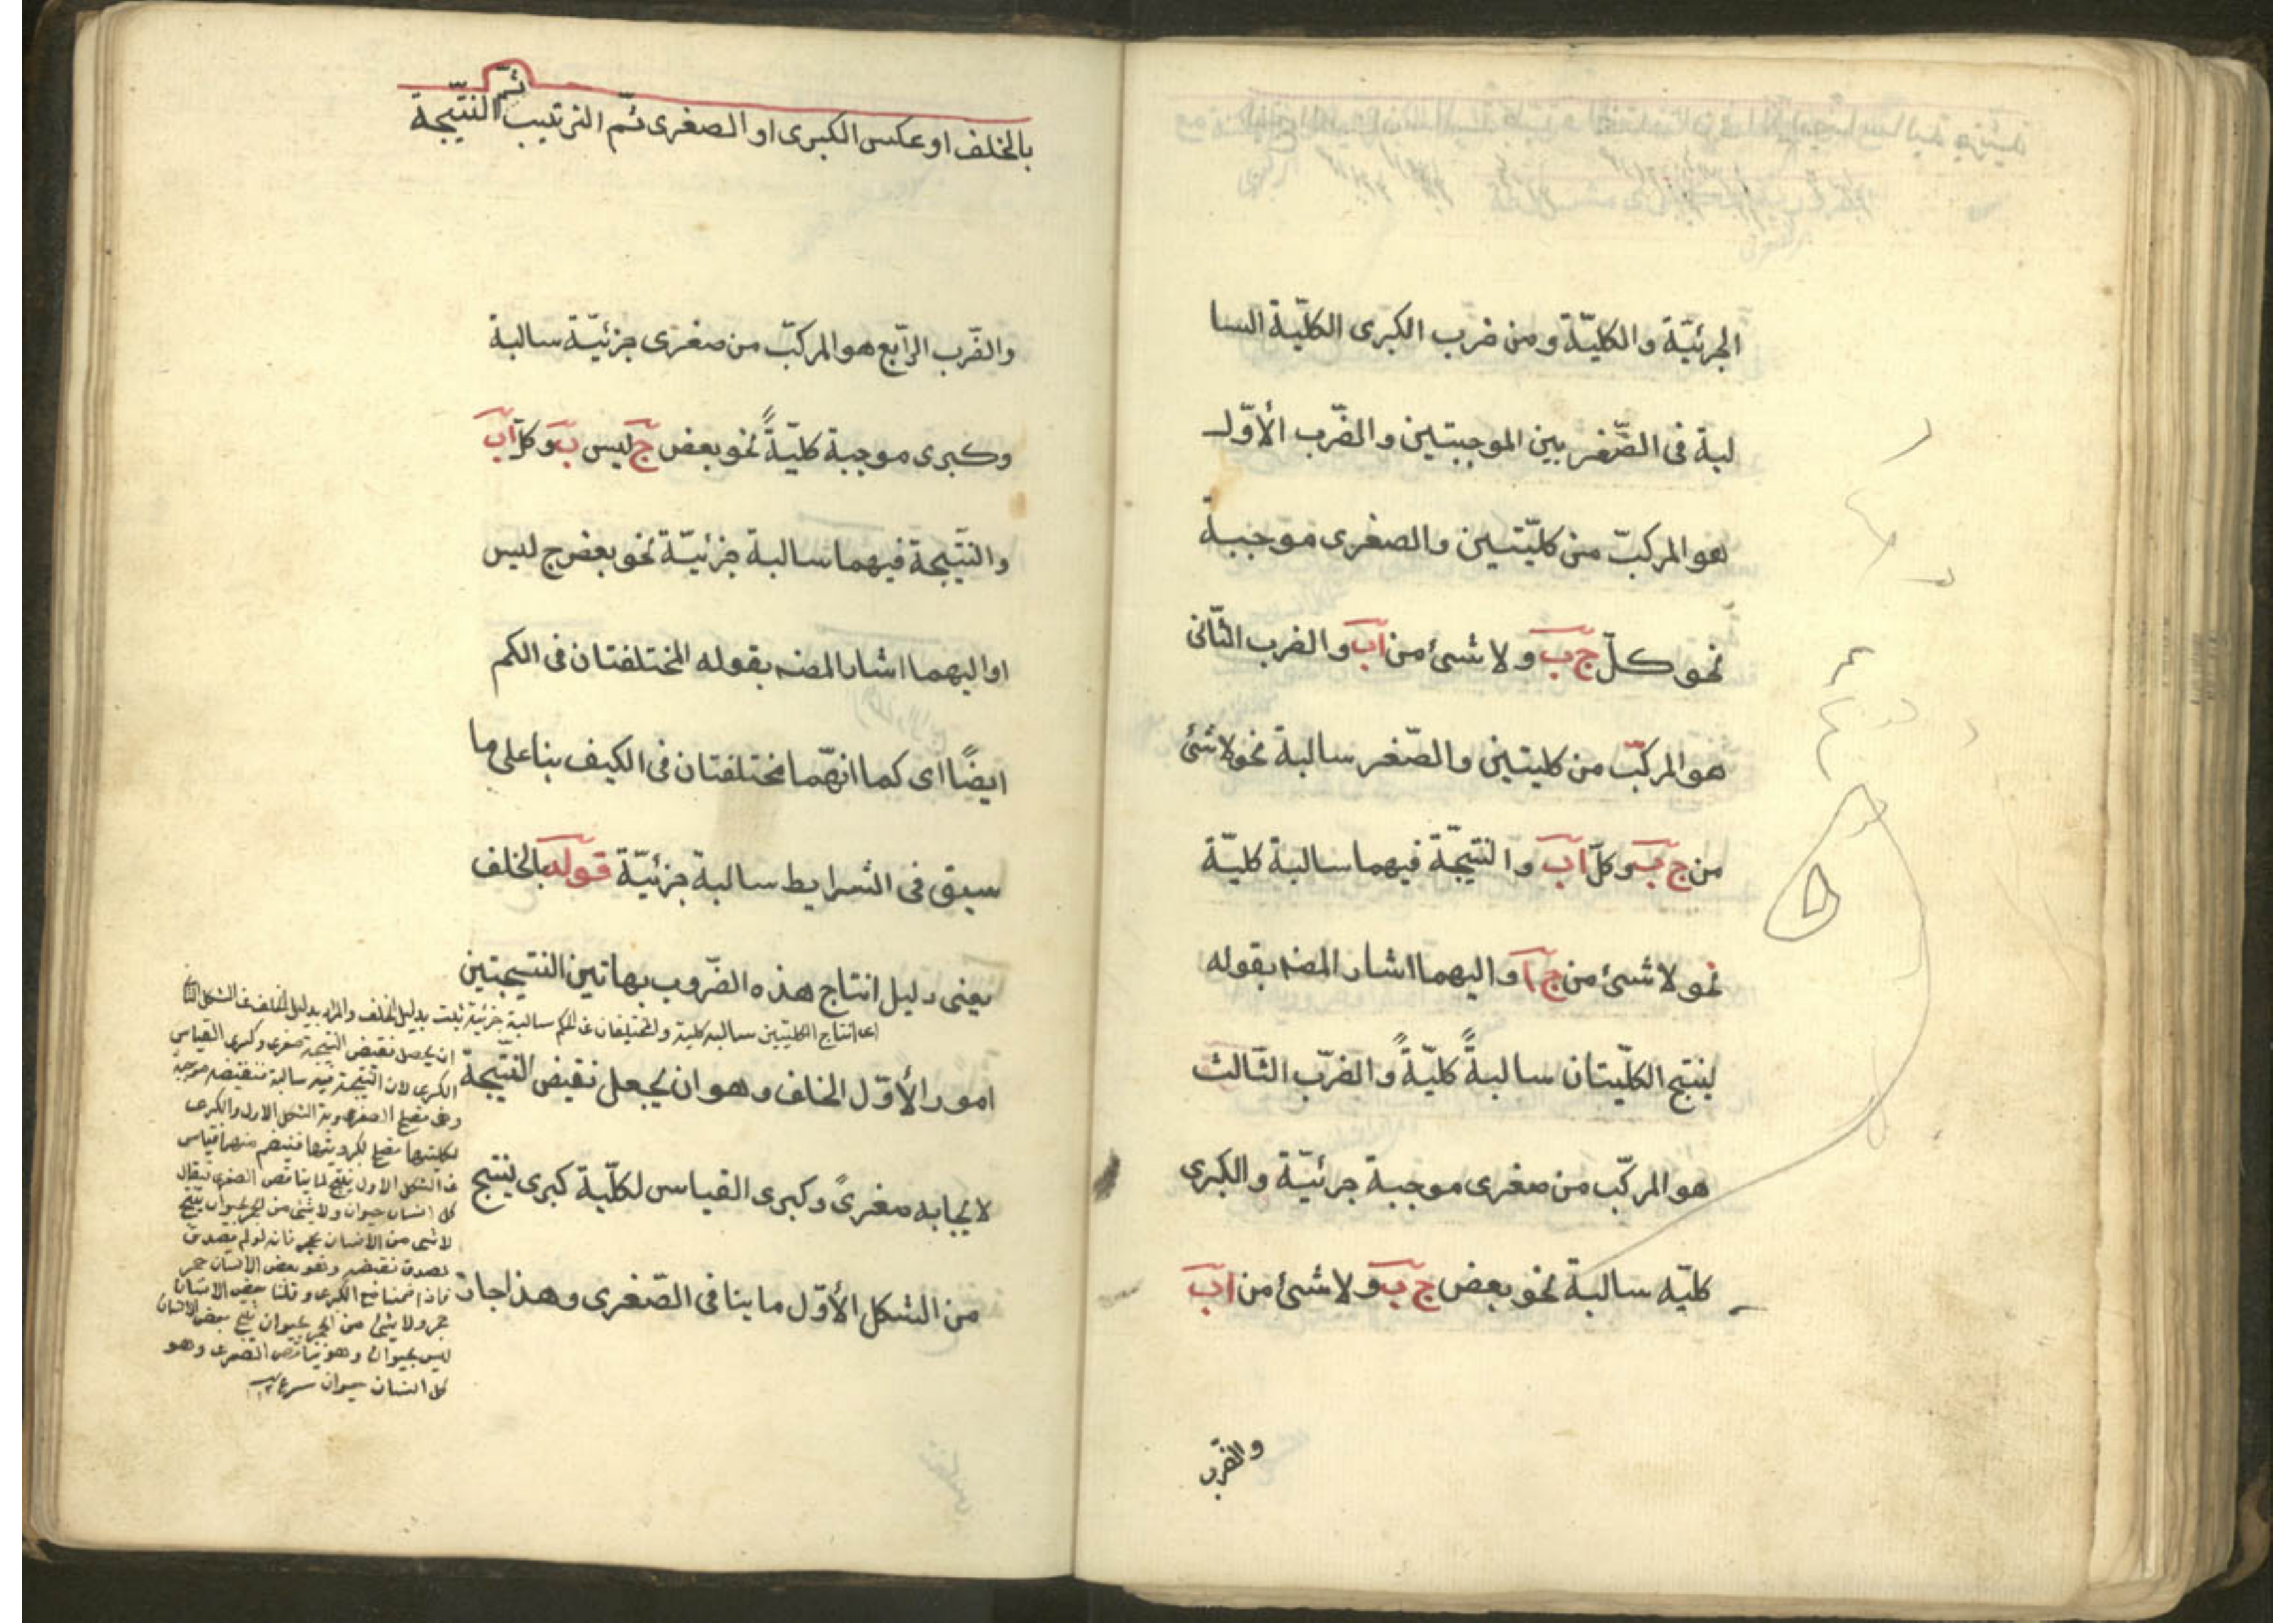 الجزئيّة والكليّة ومن ضرب الكبرى الكليّة السا
لبة فى الصّغر بين الموجبتين والضّرب الأوّل
هو المركبّ من كليّتين والصغرى موجبة
نحو كلّ ج ب ولا شىء من ا ب والضرب الثّانى
هو المركبّ من كليتين والصّغر سالبة نحو لا شئ
من ج ب وكلّ ا ب والنتيجّة فيهما سالبة كليّة
نحو لا شىء من ج ا واليهما اشار المصنه بقوله
لينتج الكلّيتان سالبةً كليّةً والضرّب الثّالث
هو المركّب من صغرى موجبة جزئيّة والكبرى
كليّه سالبة نحو بعض ج ب ولا شىء من ا ب
والضّرب
بالخلف او عكس الكبرى او الصغرى ثمّ الترتيب ثمّ النتّيجة
والضّرب الرّابع هو المركبّ من صغرى جزئيّة سالبة
وكبرى موجبة كليّةً نحو بعض ج ليس ب وكلّ ا ب
والنتّيجة فيهما سالبة جزئيّة نحو بعض ج ليس
ا واليهما اشار المصنه بقوله المختلفتان فى الكم
ايضًا اى كما انهّما مختلفتان فى الكيف بنا على ما
سبق فى الشرايط سالبة جزئيّة قوله بالخلف
يعنى دليل انتاج هذه الضّروب بهاتين النتيجتين
امور الأوّل الخلف وهو ان يجعل نقيض النتّيجة
لايجابه صغرىً وكبرى القياس لكلّية كبرى لينتج
من الشكل الأوّل ما ينافى الصّغرى وهذا جار
اى انتاج الكليتين سالبه كلية والمختلفان فى الكم سالبة جزئية ثبت بدليل الخلف والمراد بدليل الخلف فى الشكل الثانى
ان يجعل نقيض النتيجة صغرى وكبرى القياس
الكبرى لان النتيجة فيه سالبة فنقيضه موجبة
وهى تصلح الصغرى فى الشكل الاول والكبرى
لكليتها تصلح لكبرويتها فينتظم منهما قياس
فى الشكل الاول ينتج لما يناقض الصغرى فيقال
كل انسان حيوان ولا شئ من الحجر بحيوان ينتج
لا شئ من الانسان بحجر فانه لو لم يصدق
لصدق نقيضه وهو بعض الانسان حجر
فاذا ضمنا مع الكبرى وقلنا بعض الانسان
حجر ولا شئ من الحجر بحيوان ينتج بعض الانسان
ليس بحيوان وهو يناقض الصغرى وهو
كل انسان حيوان